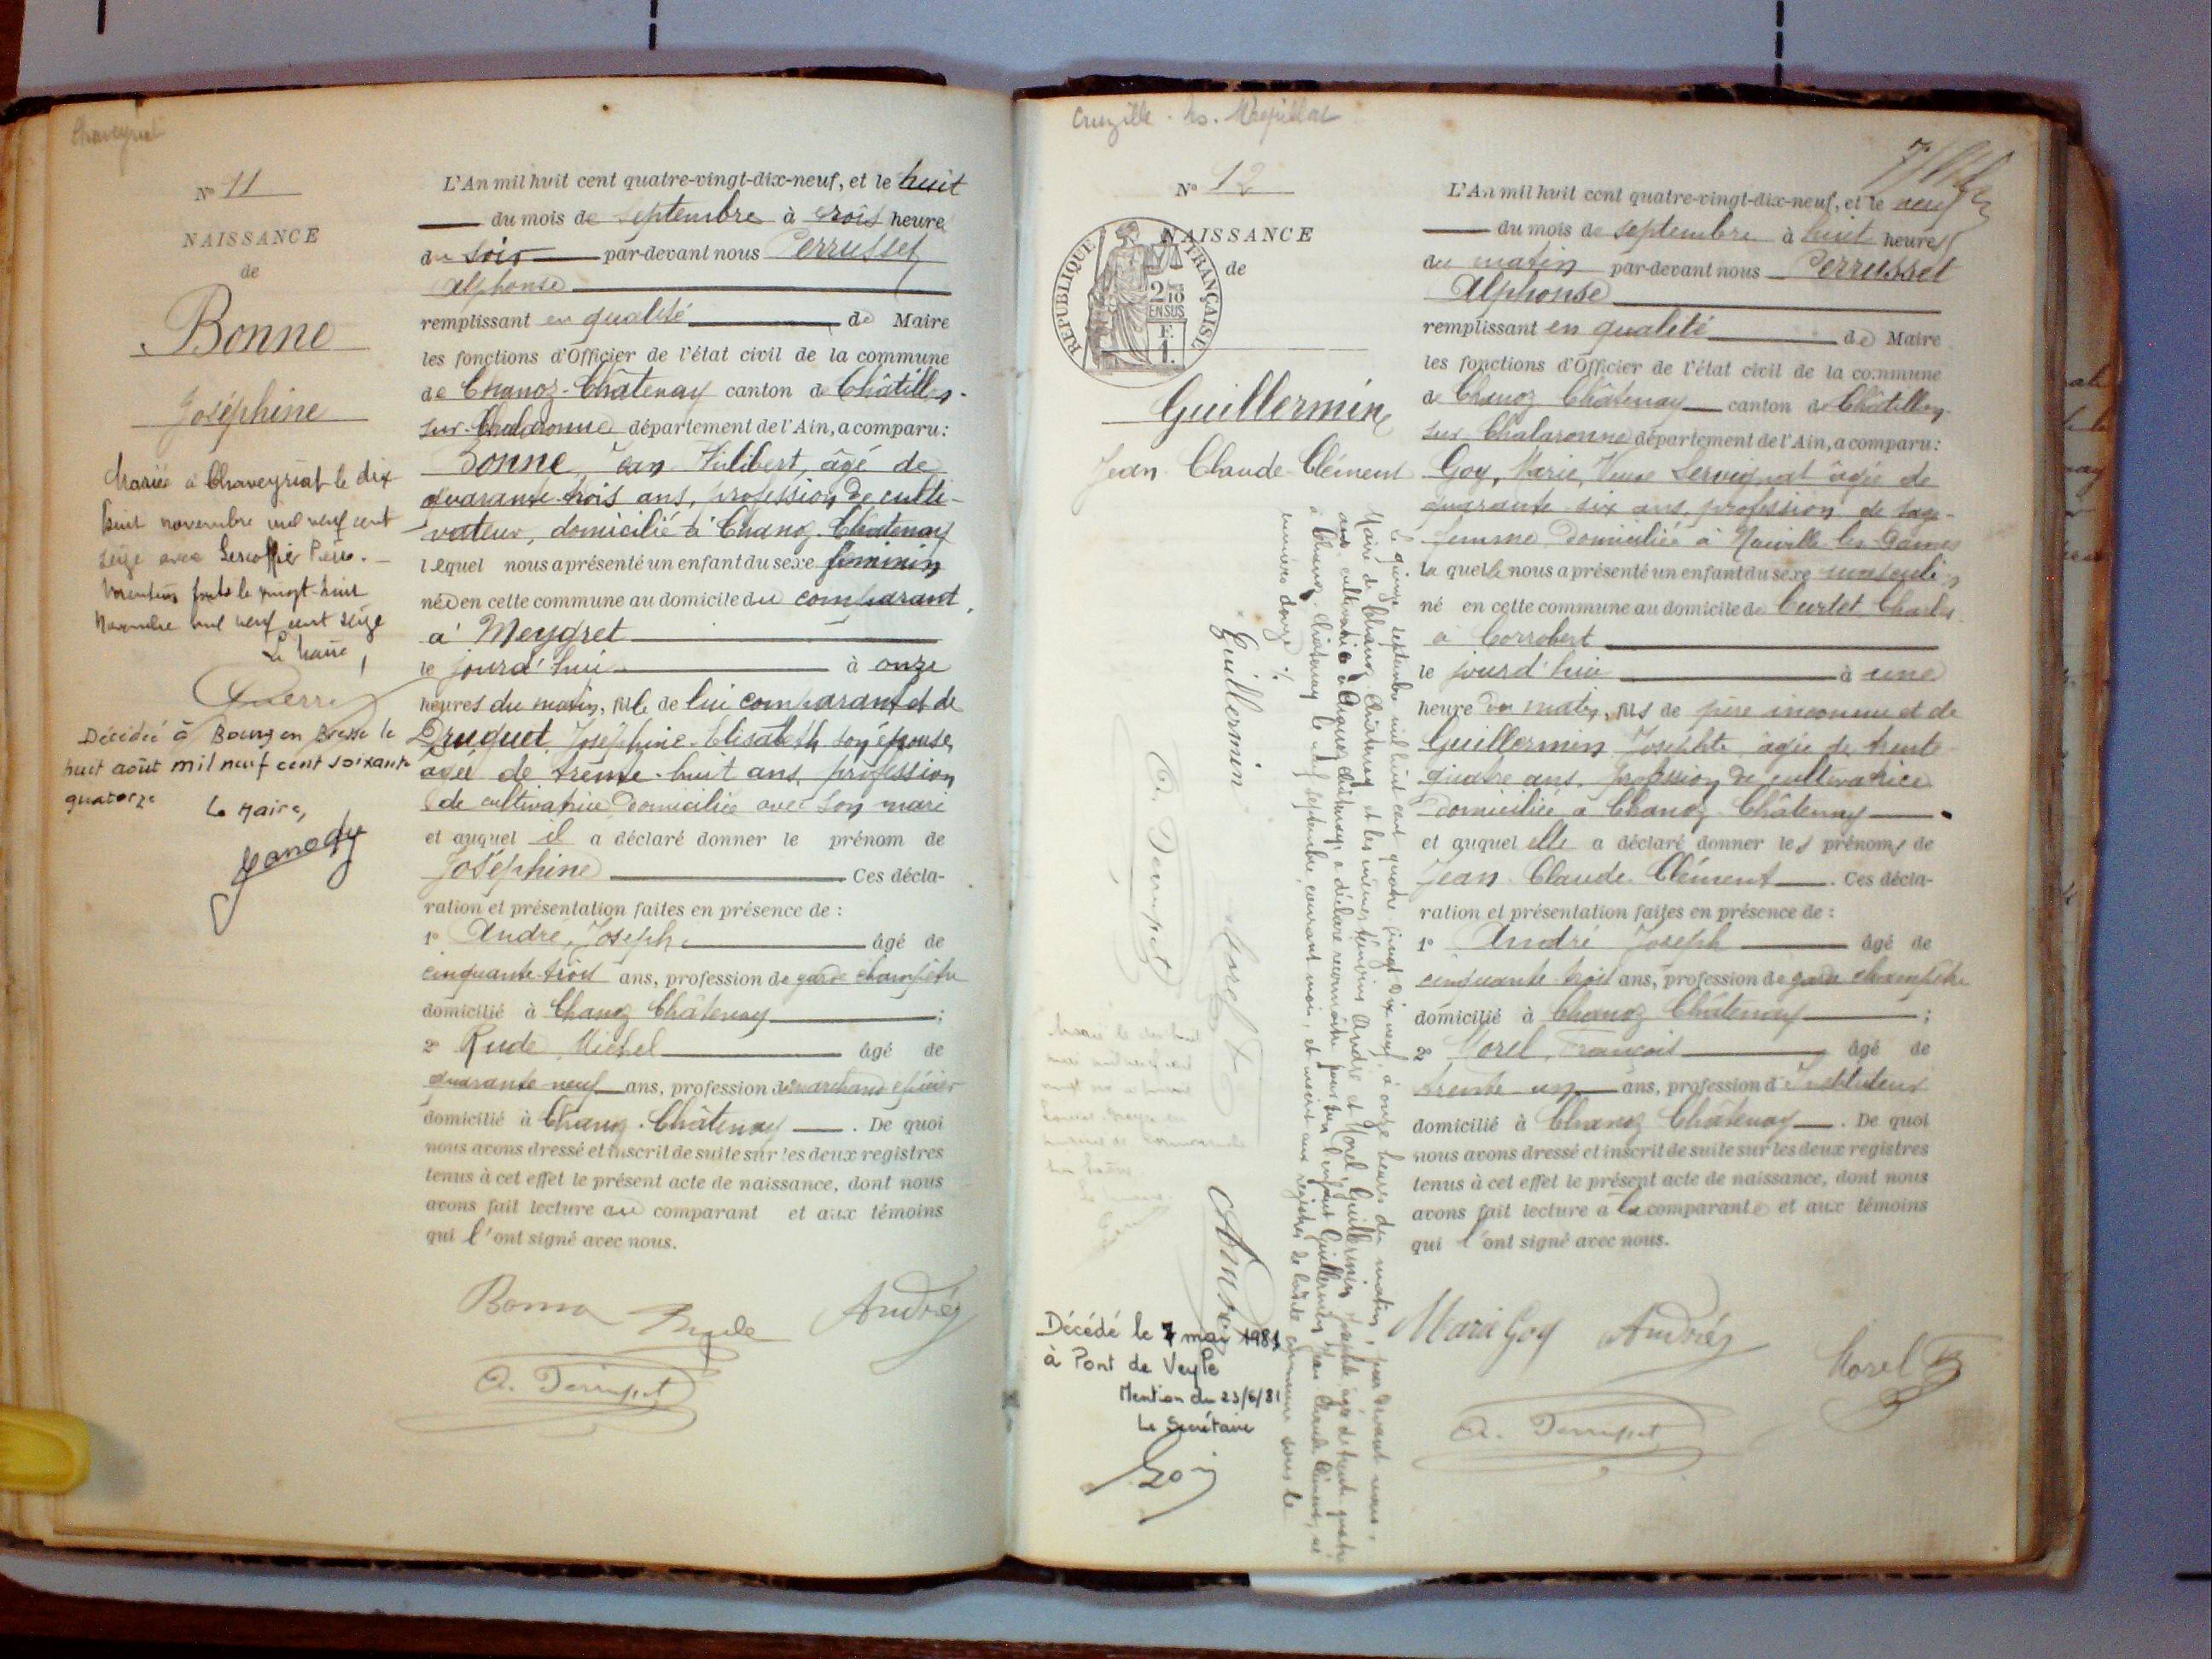 Chaveyriat
N° 11
NAISSANCE
de
Bonne
Joséphine
Mariée à Chaveyriat le dix
huit novembre mil neuf cent
seize avec Lescoffier
Mention faite le vingt-huit
Novembre mil neuf cent seize
Le Maire,
Décédée à Bourg en Bresse le
huit août mil neuf cent soixante
quatorze
Le Maire,
L'An mil huit cent quatre-vingt-dix-neuf, et le huit
du mois de septembre à trois heure
du soir par-devant nous Perrusset
Alphonse
remplissant en qualité de Maire
les fonctions d'Officier de l'état civil de la commune
de Chanoz-Châtenay canton de Châtillon-
sur-Chalaronne département de l'Ain, a comparu:
Bonne, Jean Philibert, âgé de
quarante-trois ans, profession de culti-
vateur, domicilié à Chanoz-Châtenay
lequel nous a présenté un enfant du sexe féminin
née en cette commune au domicile du comparant,
à Meygret
le jourd'hui à onze
heures du matin, fille de lui comparant et de
Druguet, Joséphine-Elisabeth son épouse,
âgée de trente-huit ans, profession
de cultivatrice domiciliée avec son mari
et auquel il a déclaré donner le prénom de
Joséphine Ces décla-
ration et présentation faites en présence de :
1° André, Joseph âgé de
cinquante-trois ans, profession de garde champêtre
domicilié à Chanoz Châtenay ;
2° Rude, Michel âgé de
quarante-neuf ans, profession de marchand épicier
domicilié à Chanoz-Châtenay . De quoi
nous avons dressé et inscrit de suite sur les deux registres
tenus à cet effet le présent acte de naissance, dont nous
avons fait lecture au comparant et aux témoins
qui l'ont signé avec nous.
Bonne Rude André
A. Perrusset
Cruzille-les-Mépillat
N° 12
NAISSANCE
de
RÉPUBLIQUE FRANÇAISE
2/10
EN SUS
F.
1.
Guillermin
Jean-Claude-Clément
Le quinze septembre mil huit cent quatre-vingt-dix-neuf, à onze heures du matin, par devant nous,
Maire de Chanoz-Châtenay et les mêmes témoins André et Morel, Guillermin Josephte, âgée de trente quatre
ans cultivatrice à Chanoz-Châtenay, a déclaré reconnaître pour son l'enfant Guillermin Jean Claude Clément, né
à Chanoz-Châtenay le neuf septembre, courant mois, et inscrit aux registres de ladite commune sous le
numéro douze ./.
Guillermin
Morel
André
A. Perrusset
Décédé le 7 mai 1981
à Pont de Veyle
Mention du 23/6/81
Le Secrétaire
L'An mil huit cent quatre-vingt-dix-neuf, et le neuf
du mois de septembre à huit heures
du matin par-devant nous Perrusset
Alphonse
remplissant en qualité de Maire
les fonctions d'Officier de l'état civil de la commune
de Chanoz Châtenay canton de Châtillon-
sur-Chalaronne département de l'Ain, a comparu:
Goy, Marie, Veuve Servignat âgée de
quarante-six ans, profession de sage-
femme domiciliée à Neuville les Dames
laquelle nous a présenté un enfant du sexe masculin
né en cette commune au domicile de Curtet Charles
à Corrobert
le jourd'hui à une
heure du matin, fils de père inconnu et de
Guillermin Josephte, âgée de trente
quatre ans, profession de cultivatrice
domiciliée à Chanoz-Châtenay
et auquel elle a déclaré donner les prénoms de
Jean-Claude-Clément . Ces décla-
ration et présentation faites en présence de :
1° André Joseph âgé de
cinquante-trois ans, profession de garde champêtre
domicilié à Chanoz Châtenay ;
2° Morel, François âgé de
trente un ans, profession d'Instituteur
domicilié à Chanoz Châtenay . De quoi
nous avons dressé et inscrit de suite sur les deux registres
tenus à cet effet le présent acte de naissance, dont nous
avons fait lecture à la comparante et aux témoins
qui l'ont signé avec nous.
Marie Goy André
Morel
A. Perrusset